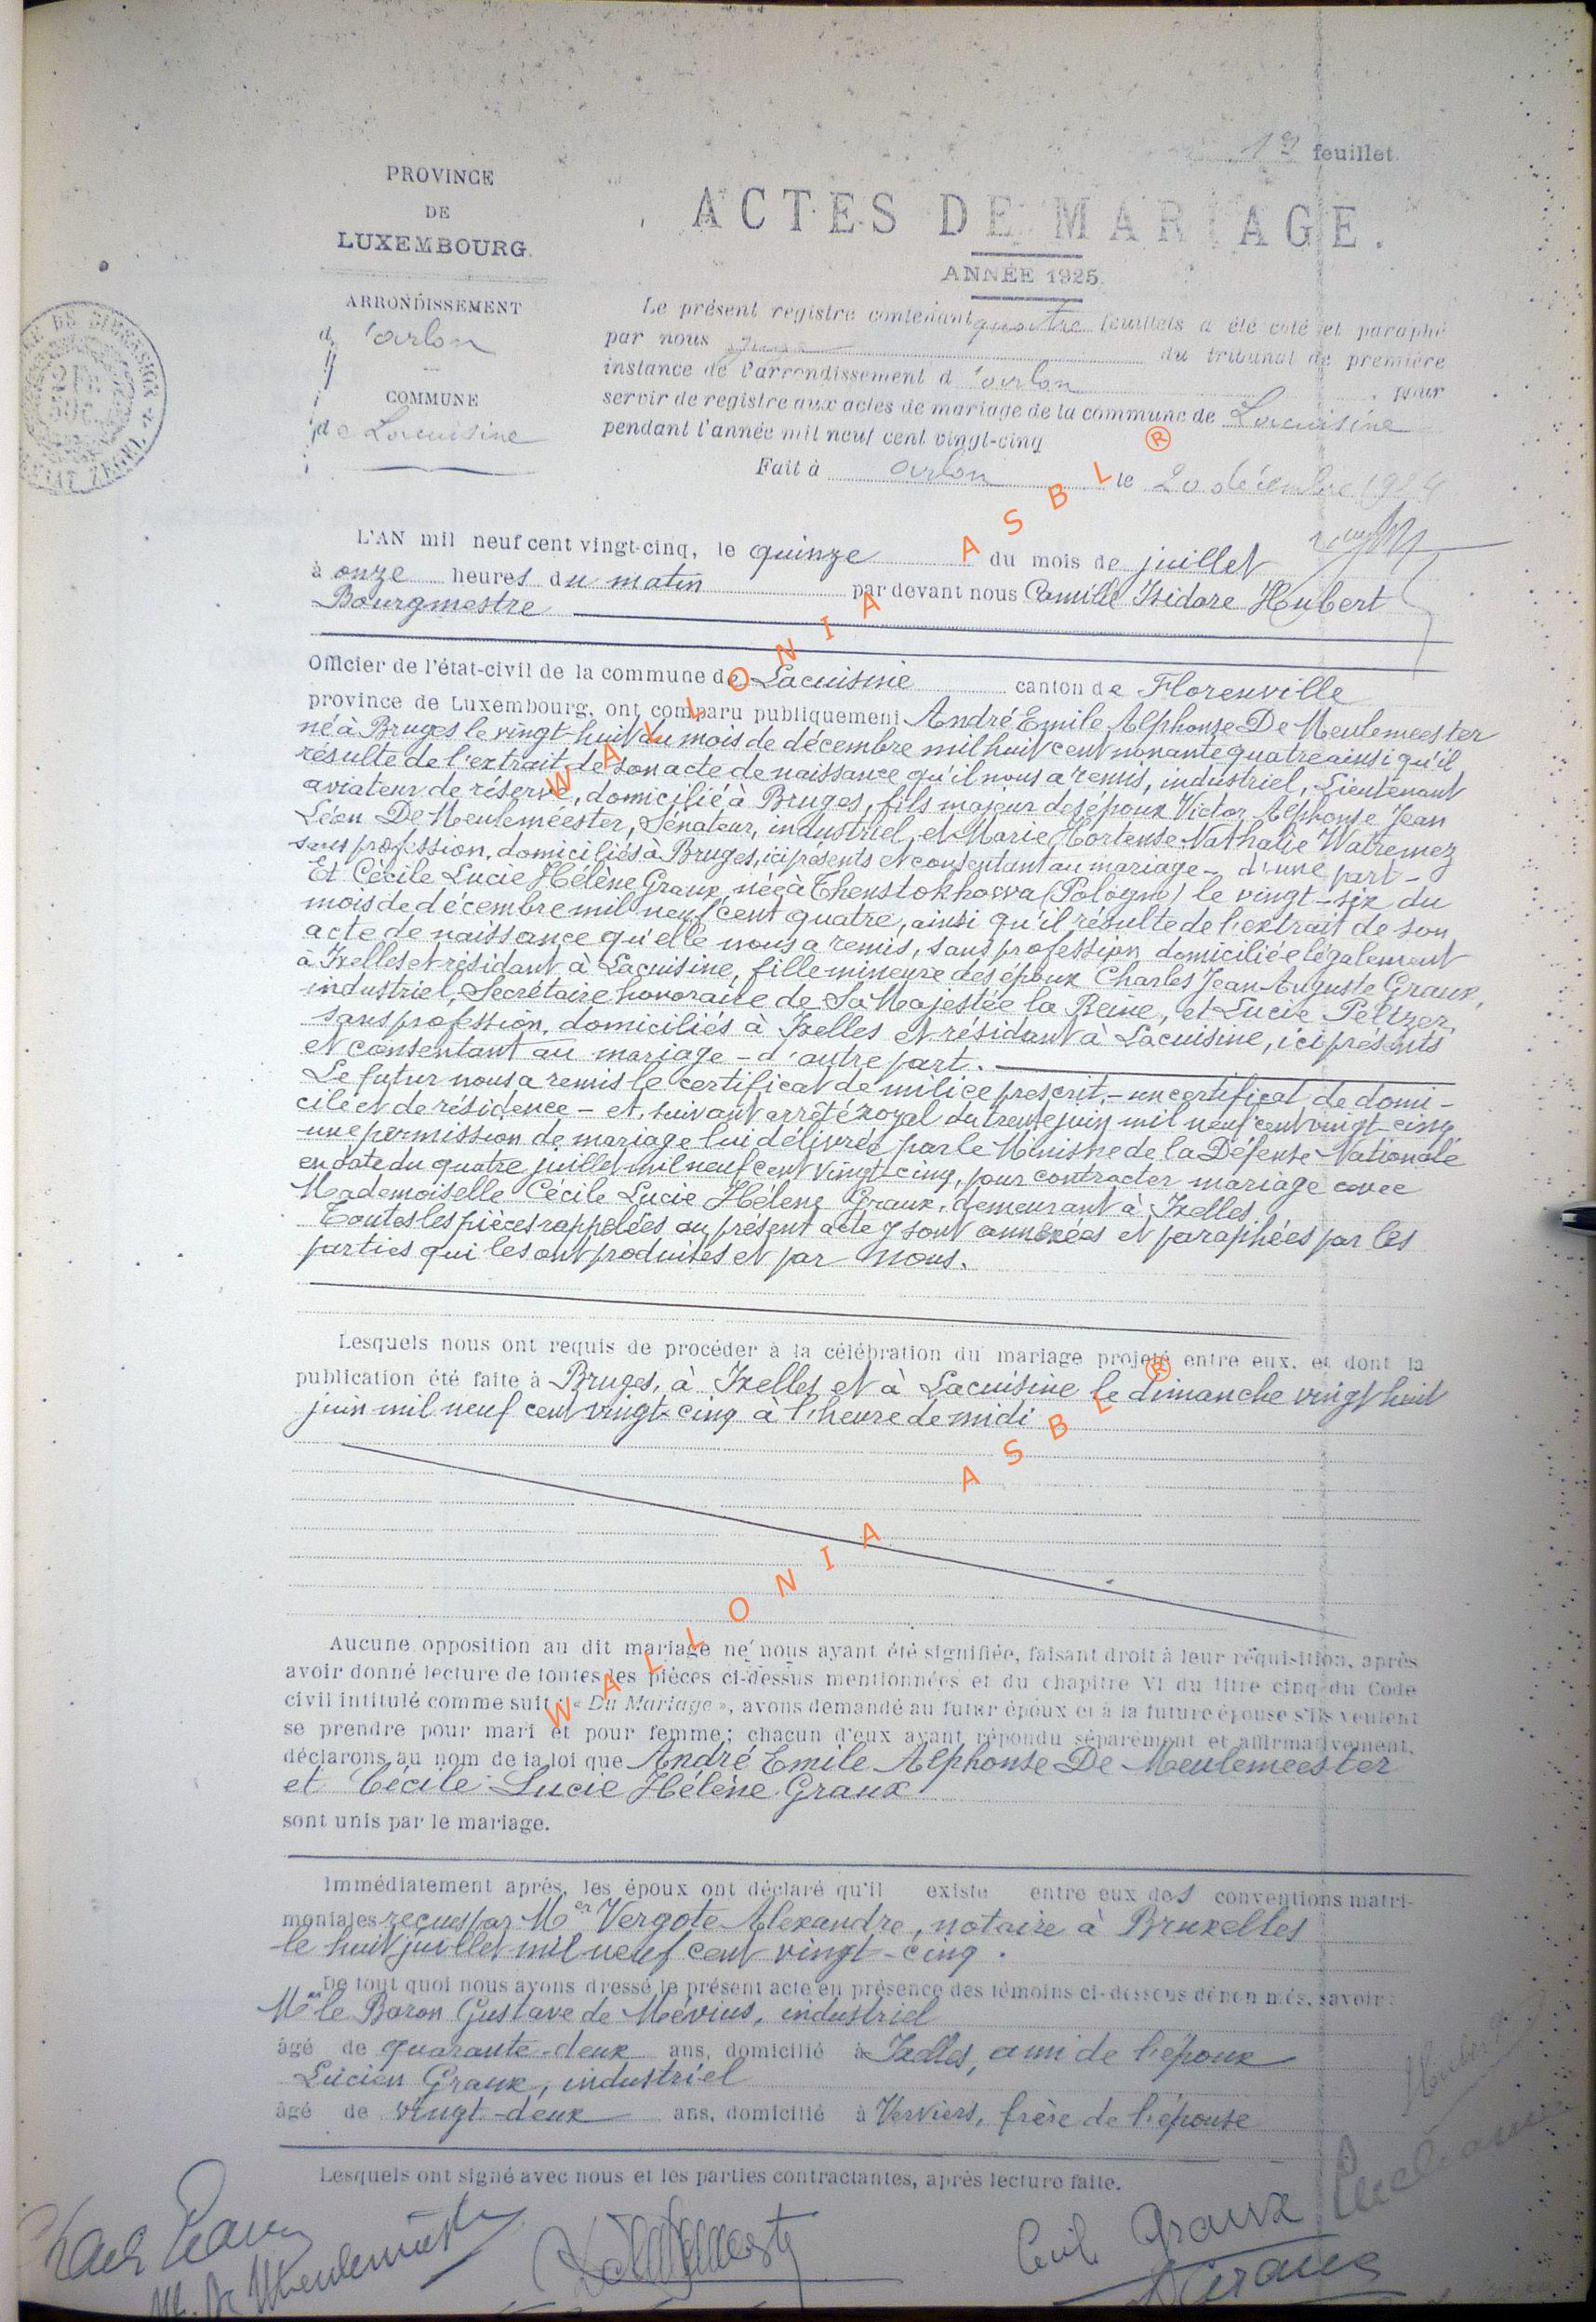 1er feuillet.
PROVINCE
DE
LUXEMBOURG.
ARRONDISSEMENT
d'arlon
COMMUNE
de Lacuisine
ACTES DE MARIAGE.
ANNÉE 1925
Le présent registre contenant quatre feuillets a été coté et paraphé
par nous juge du tribunal de première
instance de l'arrondissement d'arlon, pour
servir de registre aux actes de mariage de la commune de Lacuisine
pendant l'année mil neuf cent vingt-cinq
Fait à arlon le 20 décembre 1924
L'AN mil neuf cent vingt-cinq, le quinze du mois de juillet
à onze heures du matin par devant nous Camille Isidore Hubert
Bourgmestre
Officier de l'état-civil de la commune de Lacuisine canton de Florenville
province de Luxembourg, ont comparu publiquement André Emile Alphonse De Meulemeester
né à Bruges le vingt-huit du mois de décembre mil huit cent nonante quatre ainsi qu'il
résulte de l'extrait de son acte de naissance qu'il nous a remis, industriel, Lieutenant
aviateur de réserve, domicilié à Bruges, fils majeur des époux Victor Alphonse Jean
Léon De Meulemeester, Sénateur, industriel, et Marie Hortense Nathalie Watremez
sans profession, domiciliés à Bruges, ici présents et consentant au mariage - d'une part -
Et Cécile Lucie Hélène Graux, née à Thenstokhowa (Pologne) le vingt-six du
mois de décembre mil neuf cent quatre, ainsi qu'il résulte de l'extrait de son
acte de naissance qu'elle nous a remis, sans profession, domiciliée légalement
à Ixelles et résidant à Lacuisine, fille mineure des époux Charles Jean Auguste Graux,
industriel, Secrétaire honoraire de Sa Majestée la Reine, et Lucie Peltzer,
sans profession, domiciliés à Ixelles et résidant à Lacuisine, ici présents
et consentant au mariage - d'autre part.
Le futur nous a remis le certificat de milice prescrit, - un certificat de domi-
cile et de résidence - et, suivant arrêté royal du trente juin mil neuf cent vingt-cinq
une permission de mariage lui délivrée par le Ministre de la Défense Nationale
en date du quatre juillet mil neuf cent vingt-cinq, pour contracter mariage avec
Mademoiselle Cécile Lucie Hélène Graux, demeurant à Ixelles.
Toutes les pièces rappelées au présent acte y sont annexées et paraphées par les
parties qui les ont produites et par nous.
Lesquels nous ont requis de procéder à la célébration du mariage projeté entre eux, et dont la
publication été faite à Bruges, à Ixelles et à Lacuisine le dimanche vingt huit
juin mil neuf cent vingt-cinq à l'heure de midi
Aucune opposition au dit mariage ne nous ayant été signifiée, faisant droit à leur réquisition, après
avoir donné lecture de toutes les pièces ci-dessus mentionnées et du chapitre VI du titre cinq du Code
civil intitulé comme suit : « Du Mariage », avons demandé au futur époux et à la future épouse s'ils veulent
se prendre pour mari et pour femme ; chacun d'eux ayant répondu séparément et affirmativement,
déclarons au nom de la loi que André Emile Alphonse De Meulemeester
et Cécile Lucie Hélène Graux
sont unis par le mariage.
Immédiatement après, les époux ont déclaré qu'il existe entre eux des conventions matri-
moniales reçues par Mer Vergote Alexandre, notaire à Bruxelles
le huit juillet mil neuf cent vingt-cinq.
De tout quoi nous avons dressé le présent acte en présence des témoins ci-dessous dénommés, savoir :
Mr le Baron Gustave de Mévius, industriel
âgé de quarante-deux ans, domicilié à Ixelles, ami de l'époux
Lucien Graux, industriel
âgé de vingt-deux ans, domicilié à Verviers, frère de l'épouse
Lesquels ont signé avec nous et les parties contractantes, après lecture faite.
Hubert
Cecile Graux
Graux
WALLONIA ASBL ®
WALLONIA ASBL ®